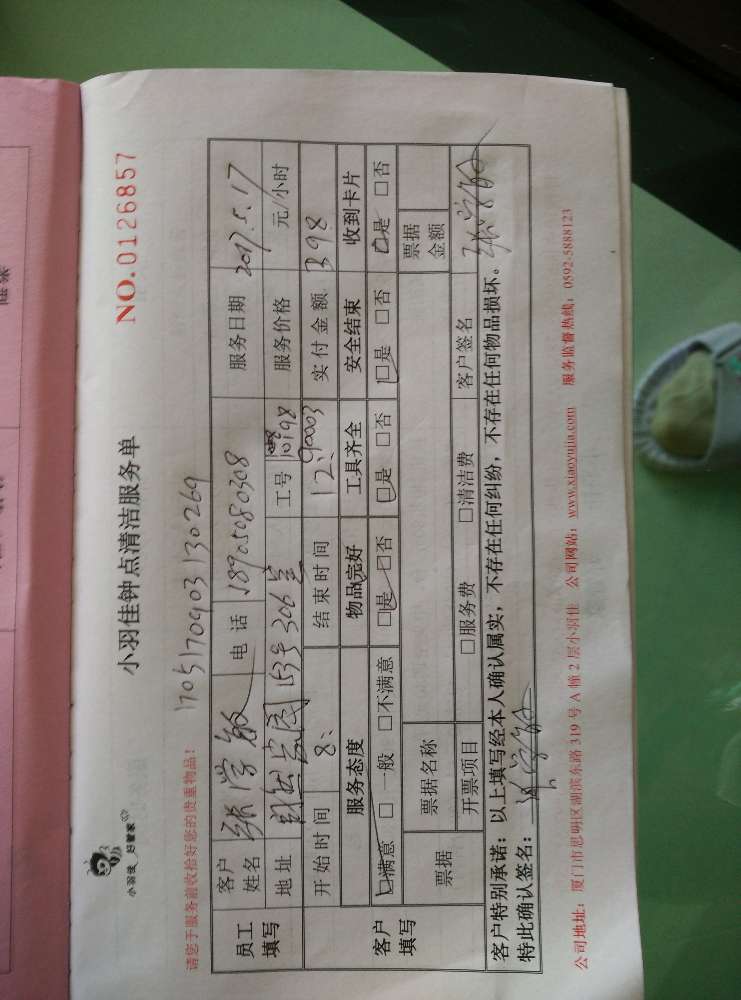 小羽佳 好管家
小羽佳钟点清洁服务单
NO.0126857
请您于服务前收拾好您的贵重物品！
1705170903130269
员工填写
客户姓名 张学敏 电话 18905080308 服务日期 2017.5.17
地址 153号306室 工号 10198 服务价格 元/小时
开始时间 8: 结束时间 12: 实付金额 398
客户填写
服务态度 物品完好 工具齐全 安全结束 收到卡片
□满意 □一般 □不满意 □是 □否 □是 □否 □是 □否 □是 □否
票据 票据名称 票据金额
开票项目 □服务费 □清洁费 客户签名 张学敏
客户特别承诺：以上填写经本人确认属实，不存在任何纠纷，不存在任何物品损坏。
特此确认签名：张学敏
公司地址：厦门市思明区湖滨东路 319 号 A 幢 2 层小羽佳 公司网站：www.xiaoyujia.com 服务监督热线：0592-5888123